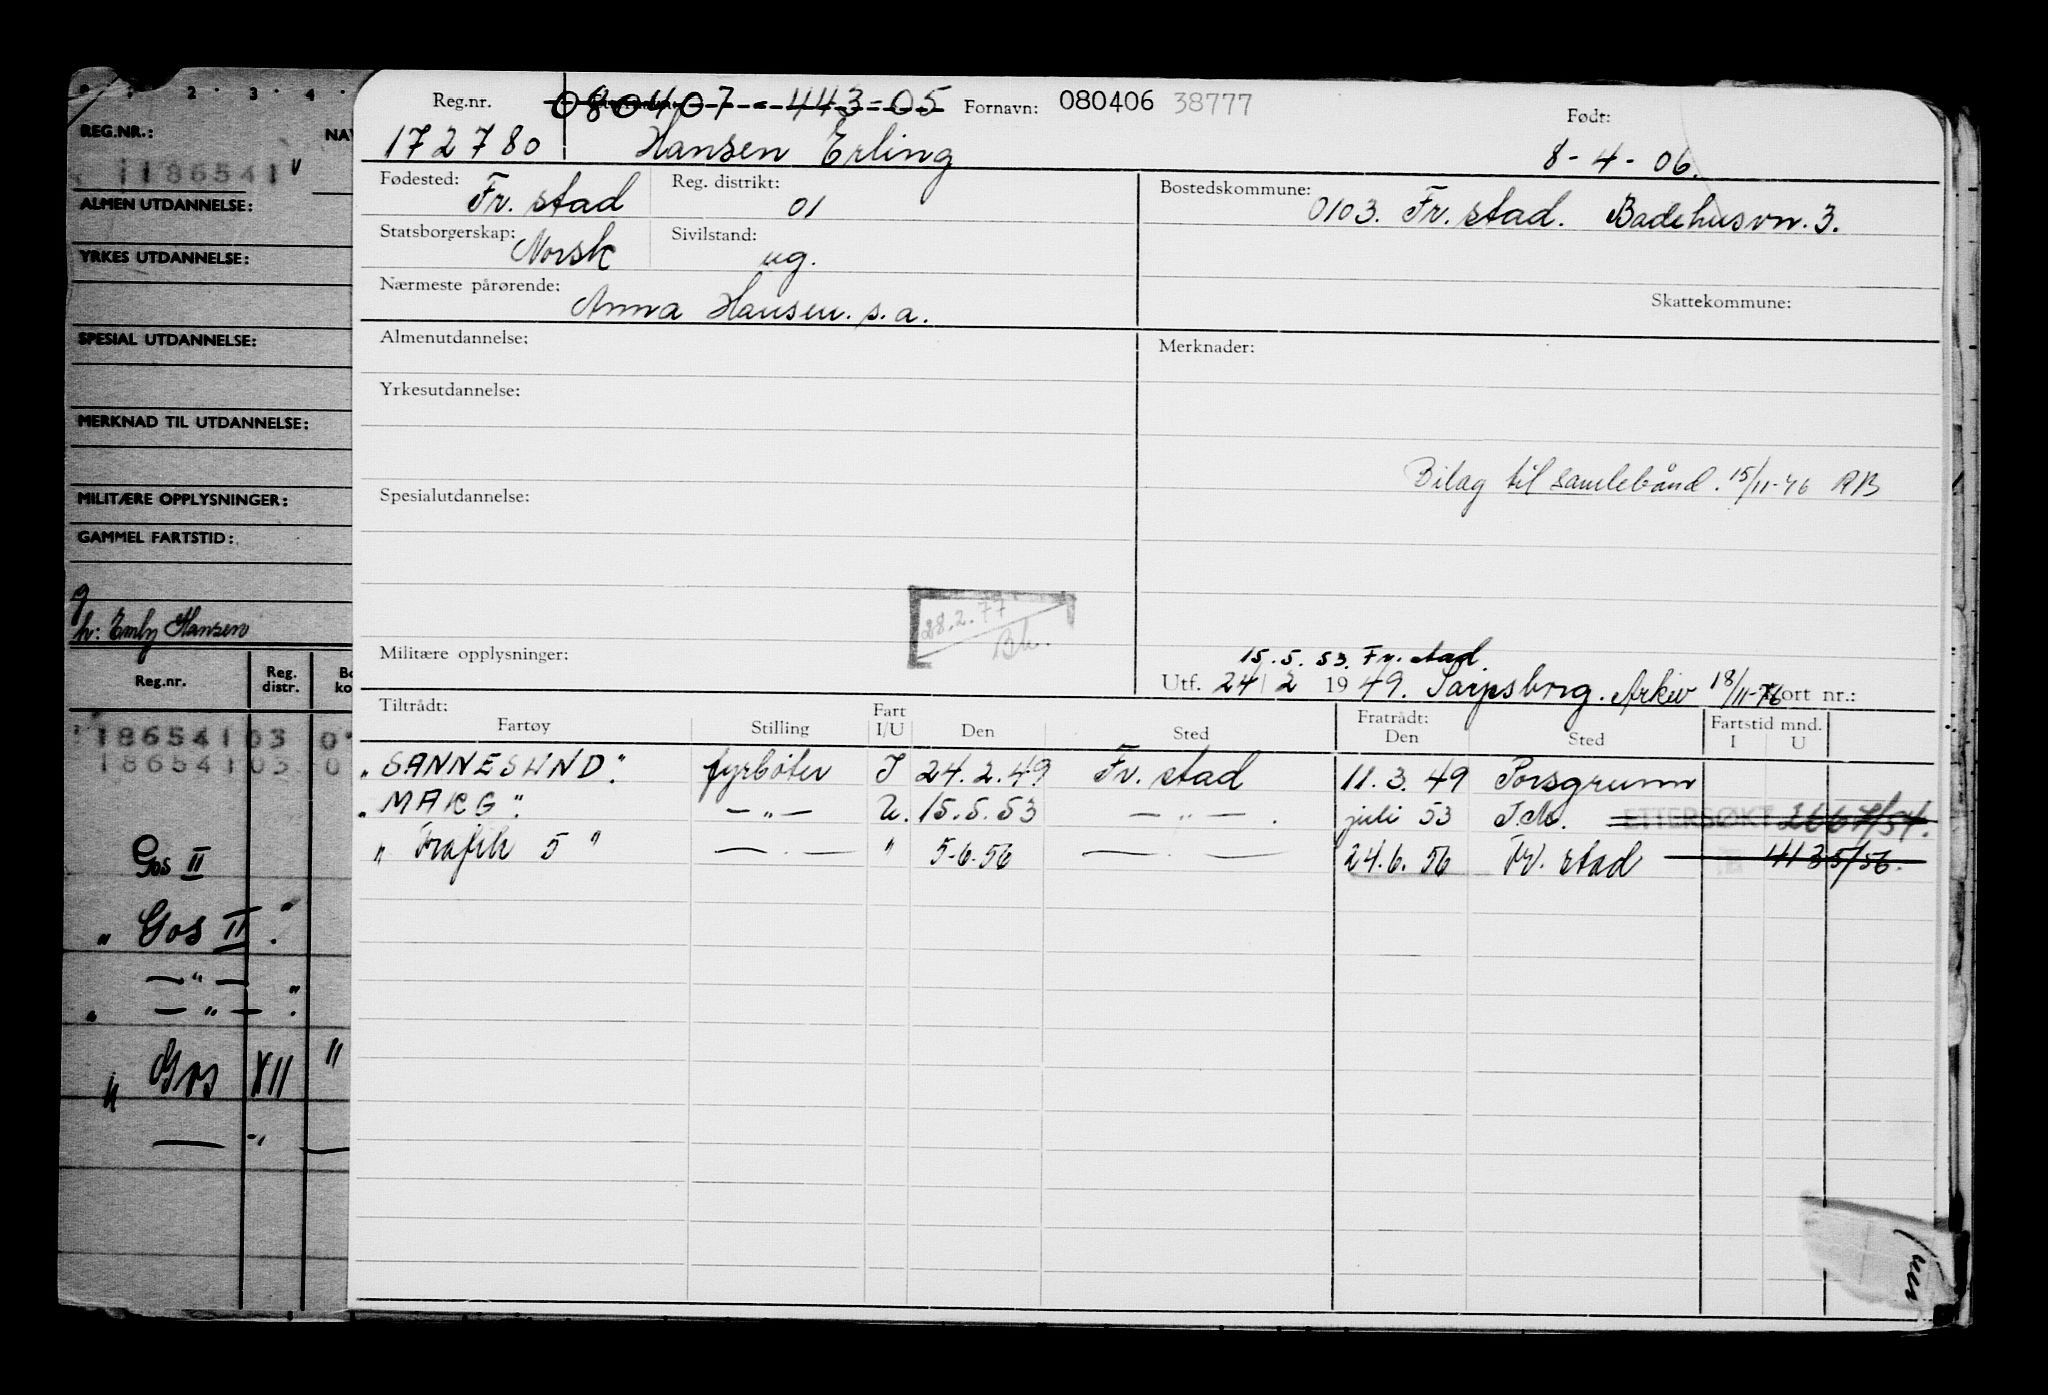 REG.NR.:
NAV
1186541 v
ALMEN UTDANNELSE:
YRKES UTDANNELSE:
SPESIAL UTDANNELSE:
MERKNAD TIL UTDANNELSE:
MILITÆRE OPPLYSNINGER:
GAMMEL FARTSTID:
h: Emly Hansen
Reg.nr. Reg. distr. Bo ko
118654103 0
118654103 0
Gos II
" Gos II "
— " —
" — " — "
" Gos XII "
— " —
Reg.nr. 080407-443-05 Fornavn: 080406 38777 Født:
172780 Hansen Erling 8-4-06.
Fødested: Fr. stad Reg. distrikt: 01 Bostedskommune: 0103. Fr. stad. Badehusvn. 3.
Statsborgerskap: Norsk Sivilstand: ug.
Nærmeste pårørende: Anna Hansen. s.a. Skattekommune:
Almenutdannelse: Merknader:
Yrkesutdannelse:
Bilag til samlebånd. 15/11-76 RB
Spesialutdannelse:
28.2.77
Militære opplysninger: 15.5.53. Fr. stad.
Utf. 24/2 1949. Sarpsborg. Arkiv 18/11-76 Kort nr.:
Tiltrådt: Fratrådt: Fartstid mnd.
Fartøy Stilling Fart I/U Den Sted Den Sted I U
"SANNESUND". fyrbøter I 24.2.49 Fr. stad 11.3.49 Porsgrunn
"MAKG". — " — U. 15.5.53 — " — . juli 53 T.M. ETTERSØKT 2667/54.
"Trafik 5" — . — " 5-6-56 — . — 24.6.56 Fr. stad 4135/56.